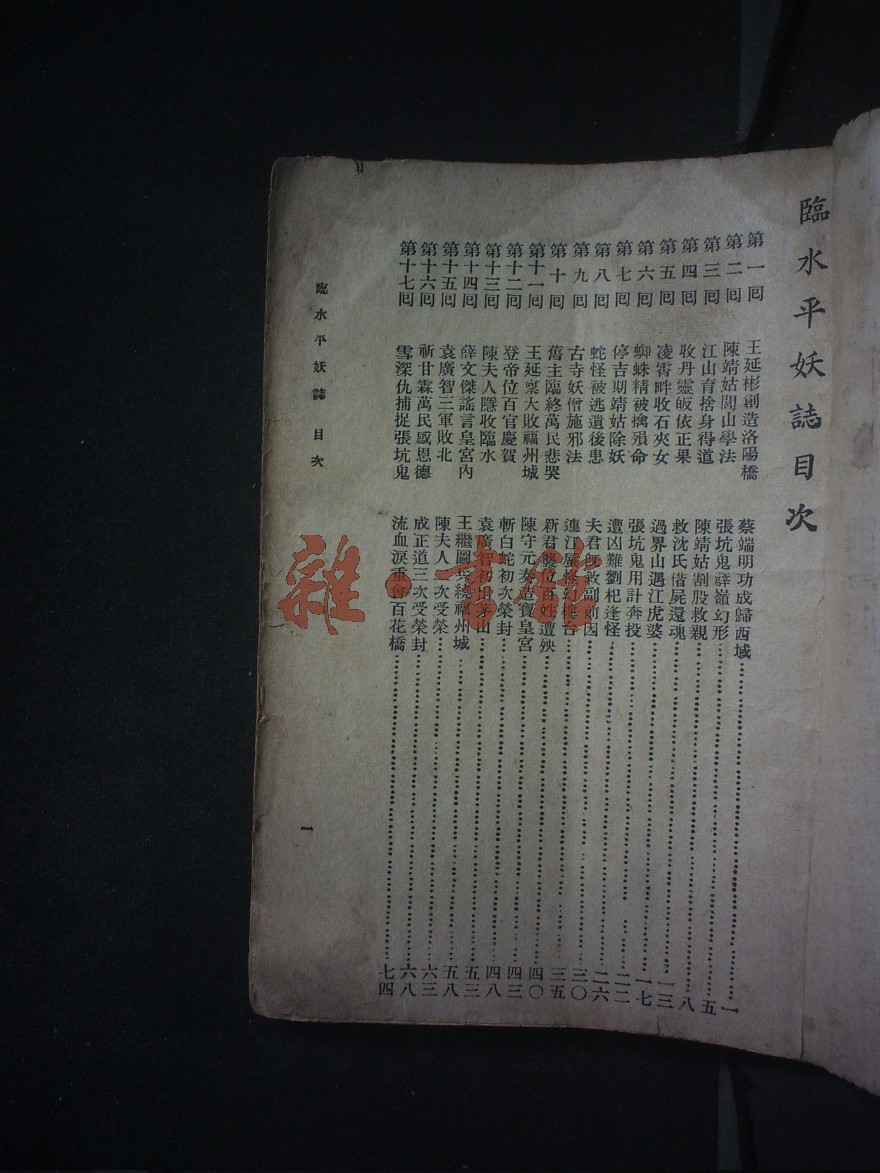 臨水平妖誌目次
第一回 王延彬創造洛陽橋 蔡端明功成歸西域 一
第二回 陳靖姑閭山學法 張坑鬼嶺幻形 五
第三回 江山育捨身得道 陳靖姑割股救親 八
第四回 收丹靈皈依正果 救沈氏借屍還魂 一三
第五回 凌霄畔收石夾女 過界山遇江虎婆 一七
第六回 蜘蛛精被擒殞命 張坑鬼用計奔投 二二
第七回 停吉期靖姑除妖 遭凶難劉杞逢怪 二六
第八回 蛇怪被逃遺後患 夫君救前因 三〇
第九回 古寺妖僧施邪法 連江屋樓台 三五
第十回 舊主臨終萬民悲哭 新君位百姓遭殃 四〇
第十一回 王延稟大敗福州城 陳守元奏造寶皇宮 四三
第十二回 登帝位百官慶賀 斬白蛇初次榮封 四八
第十三回 陳夫人隱收臨水 袁廣智初出茅山 五三
第十四回 薛文傑謠言皇宮內 王繼圖兵繞福州城 五八
第十五回 袁廣智三軍敗北 陳夫人二次受榮 六三
第十六回 祈甘霖萬民感恩德 成正道三次受榮封 六八
第十七回 雪深仇捕捉張坑鬼 流血淚重會百花橋 七四
臨水平妖誌 目次
一
雜·書館